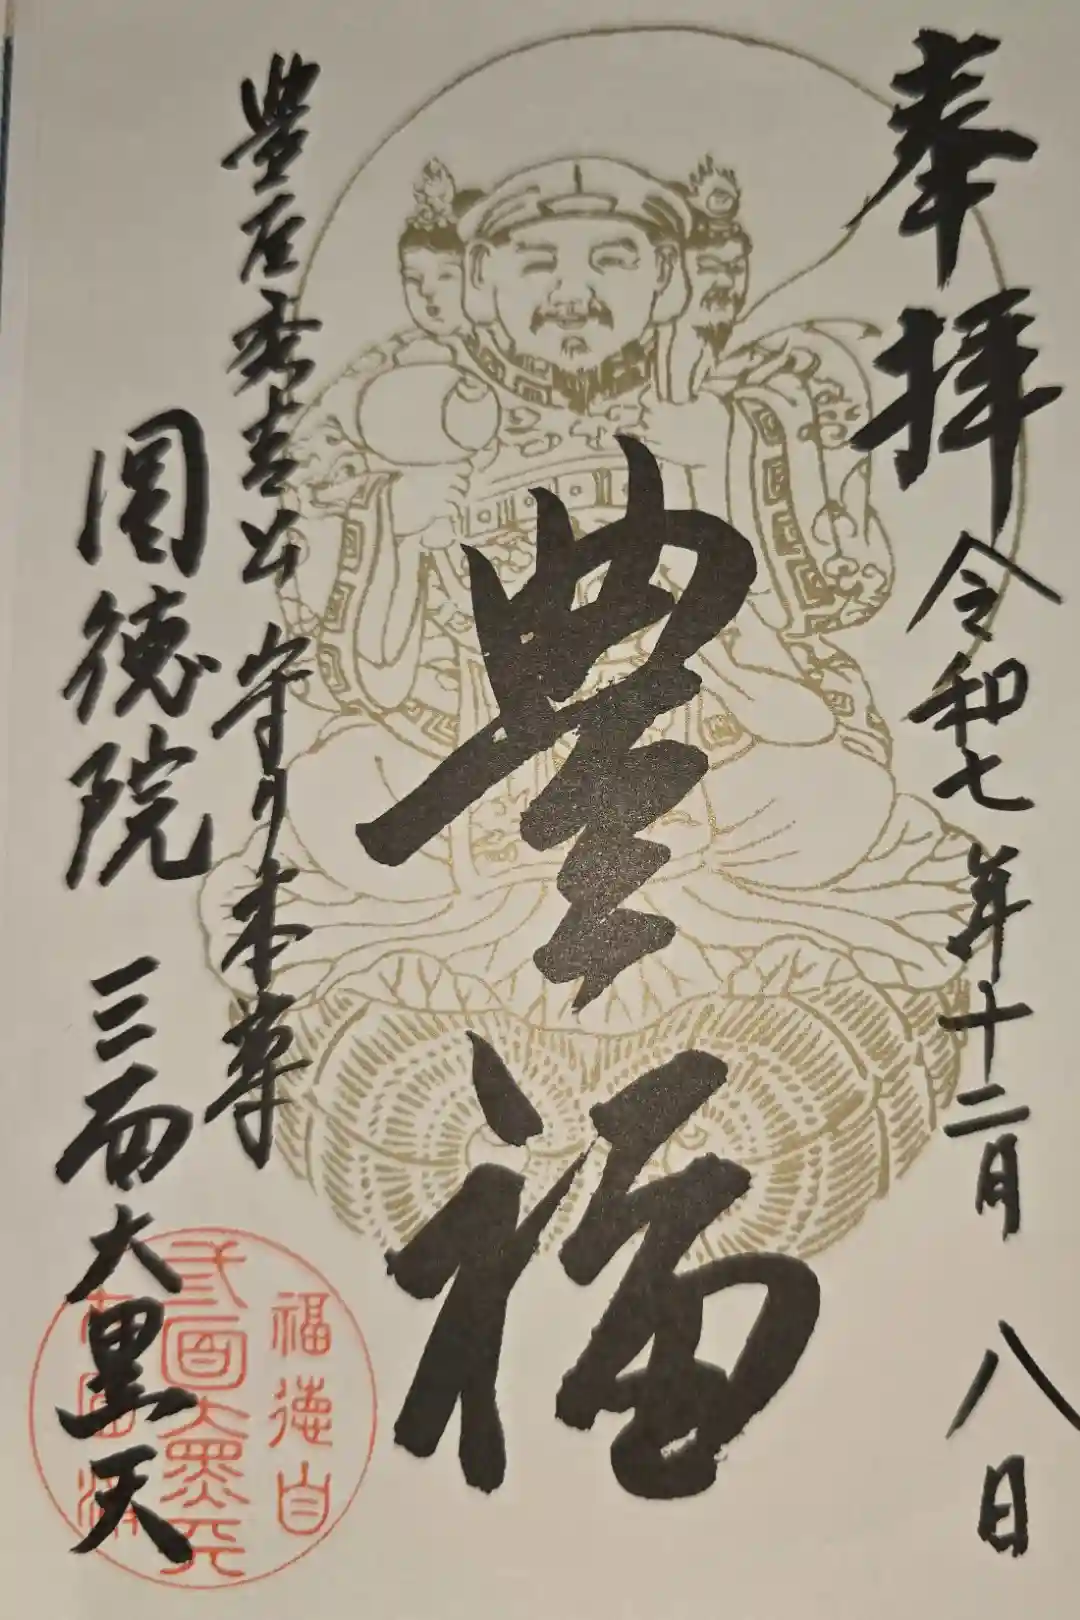 奉拝 令和七年十二月八日
豊福
豊臣秀吉公守り本尊
圓徳院 三面大黒天
福徳自
三面大黒天